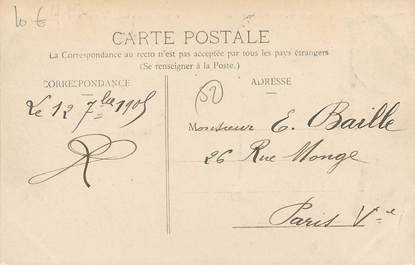 10 €
CARTE POSTALE
La Correspondance au recto n'est pas acceptée par tous les pays étrangers
(Se renseigner à la Poste.)
CORRESPONDANCE
Le 12 7bre 1905
R
ADRESSE
50
Monsieur E. Baille
26 Rue Monge
Paris Ve